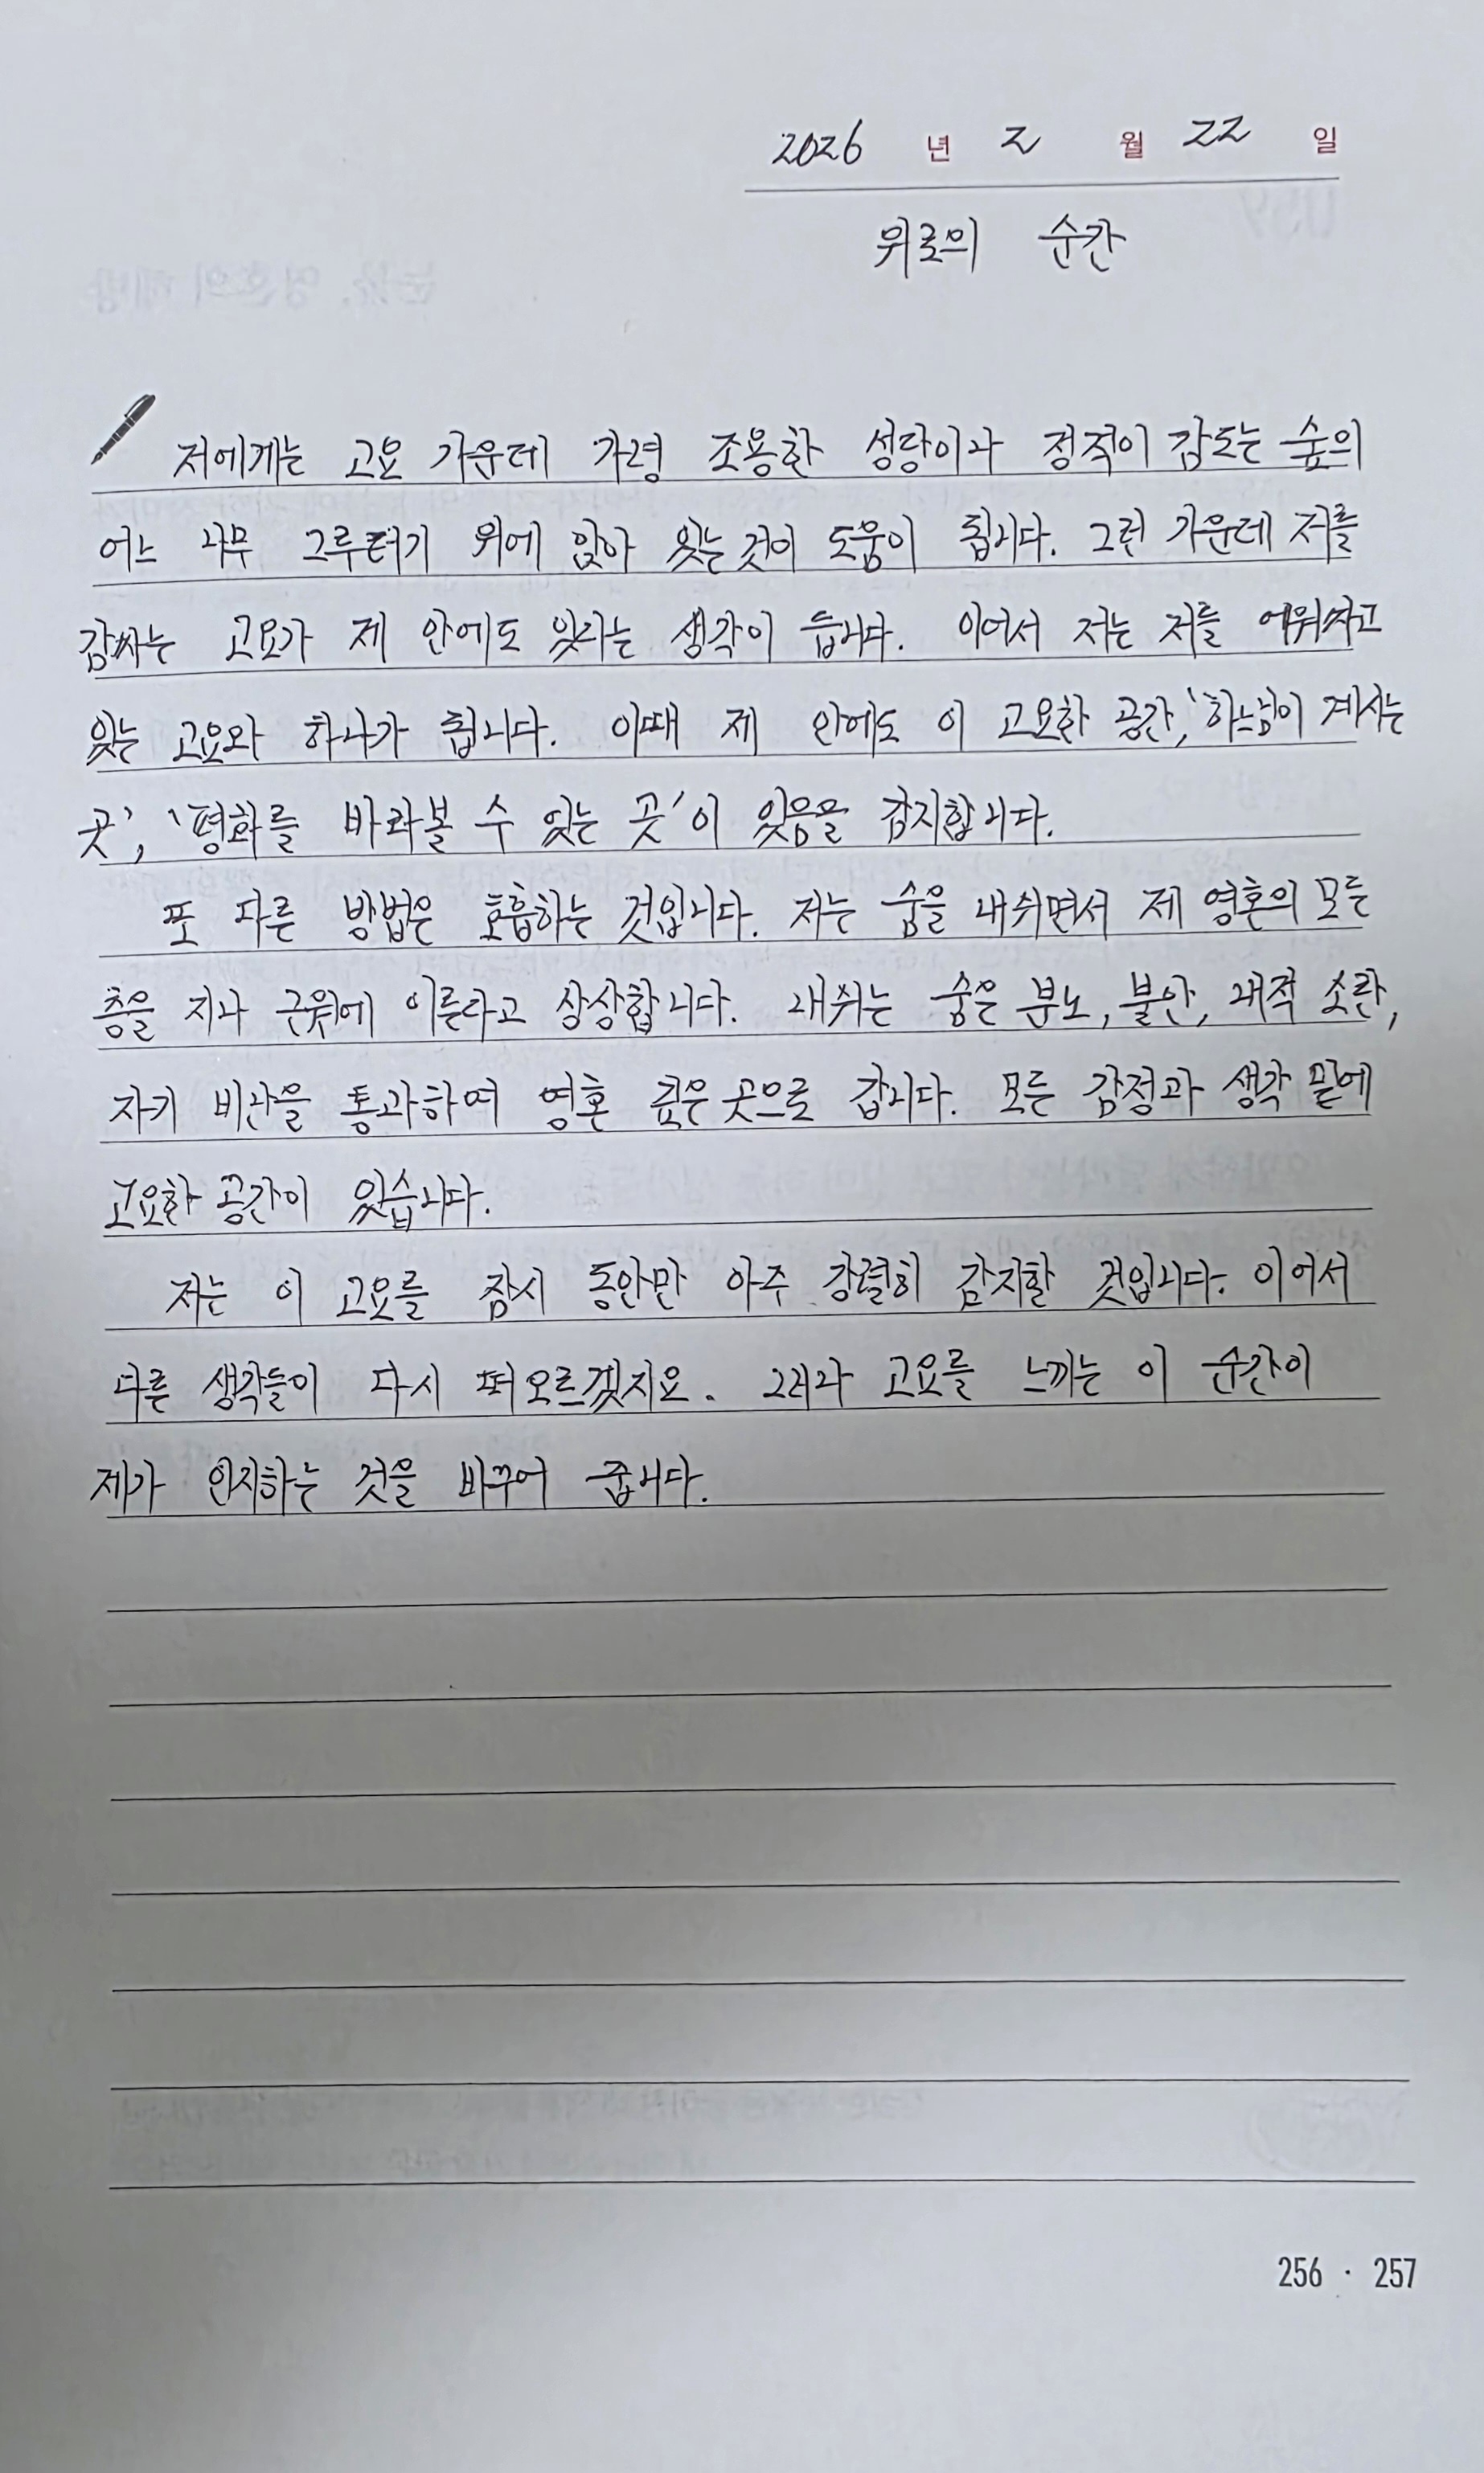 2026 년 2 월 22 일
위로의 순간
저에게는 고요 가운데 가령 조용한 성당이나 정적이 감도는 숲의
어느 나무 그루터기 위에 앉아 있는 것이 도움이 됩니다. 그런 가운데 저를
감싸는 고요가 제 안에도 있다는 생각이 듭니다. 이어서 저는 저를 에워싸고
있는 고요와 하나가 됩니다. 이때 제 안에도 이 고요한 공간, '하느님이 계시는
곳', '평화를 바라볼 수 있는 곳'이 있음을 감지합니다.
또 다른 방법은 호흡하는 것입니다. 저는 숨을 내쉬면서 제 영혼의 모든
층을 지나 근원에 이른다고 상상합니다. 내쉬는 숨은 분노, 불안, 내적 소란,
자기 비난을 통과하여 영혼 깊은 곳으로 갑니다. 모든 감정과 생각 밑에
고요한 공간이 있습니다.
저는 이 고요를 잠시 동안만 아주 강렬히 감지할 것입니다. 이어서
다른 생각들이 다시 떠오르겠지요. 그러나 고요를 느끼는 이 순간이
제가 인지하는 것을 바꾸어 줍니다.
256 · 257